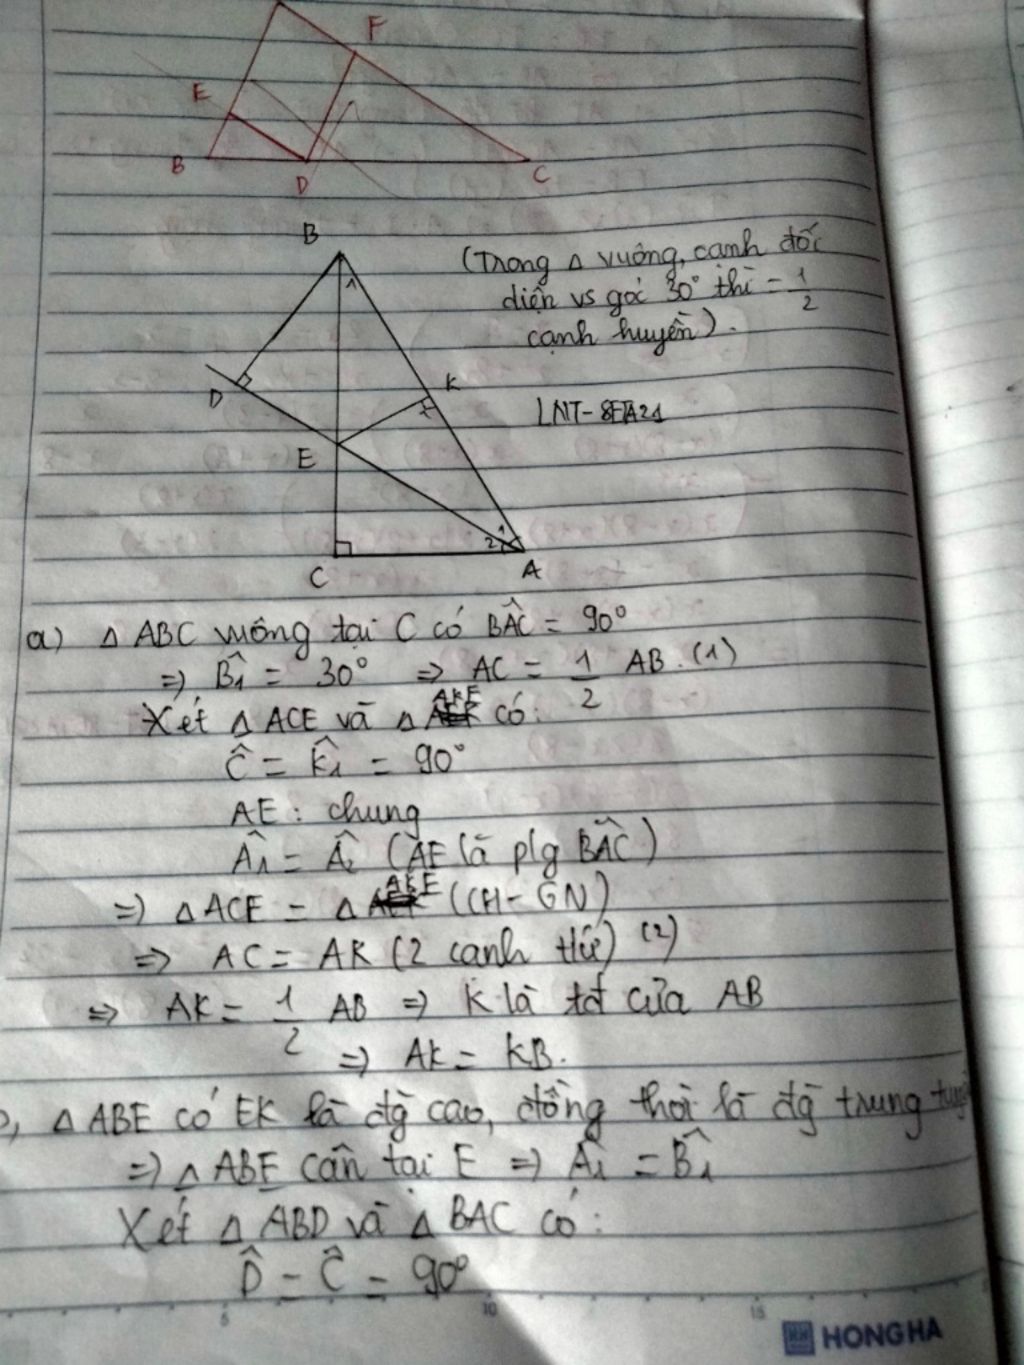 F
E
B
D
C
B
1
(Trong Δ vuông, cạnh đối
diện vs góc 30° thì = 1/2
cạnh huyền).
D
K
1
LNT-8FTA21
E
1
2
C
A
a) Δ ABC vuông tại C có BÂC = 90°
=> B̂1 = 30° => AC = 1/2 AB. (1)
Xét Δ ACE và Δ AKE có:
Ĉ = K̂1 = 90°
AE: chung
Â1 = Â2 (AE là p/g BÂC)
=> Δ ACE = Δ AKE (CH-GN)
=> AC = AK (2 cạnh t/ứ) (2)
=> AK = 1/2 AB => K là tđ của AB
=> AK = KB.
, Δ ABE có EK là đg cao, đồng thời là đg trung
=> Δ ABE cân tại E => Â1 = B̂1
Xét Δ ABD và Δ BAC có:
D̂ = Ĉ = 90°
5
10
15
HH HONG HA